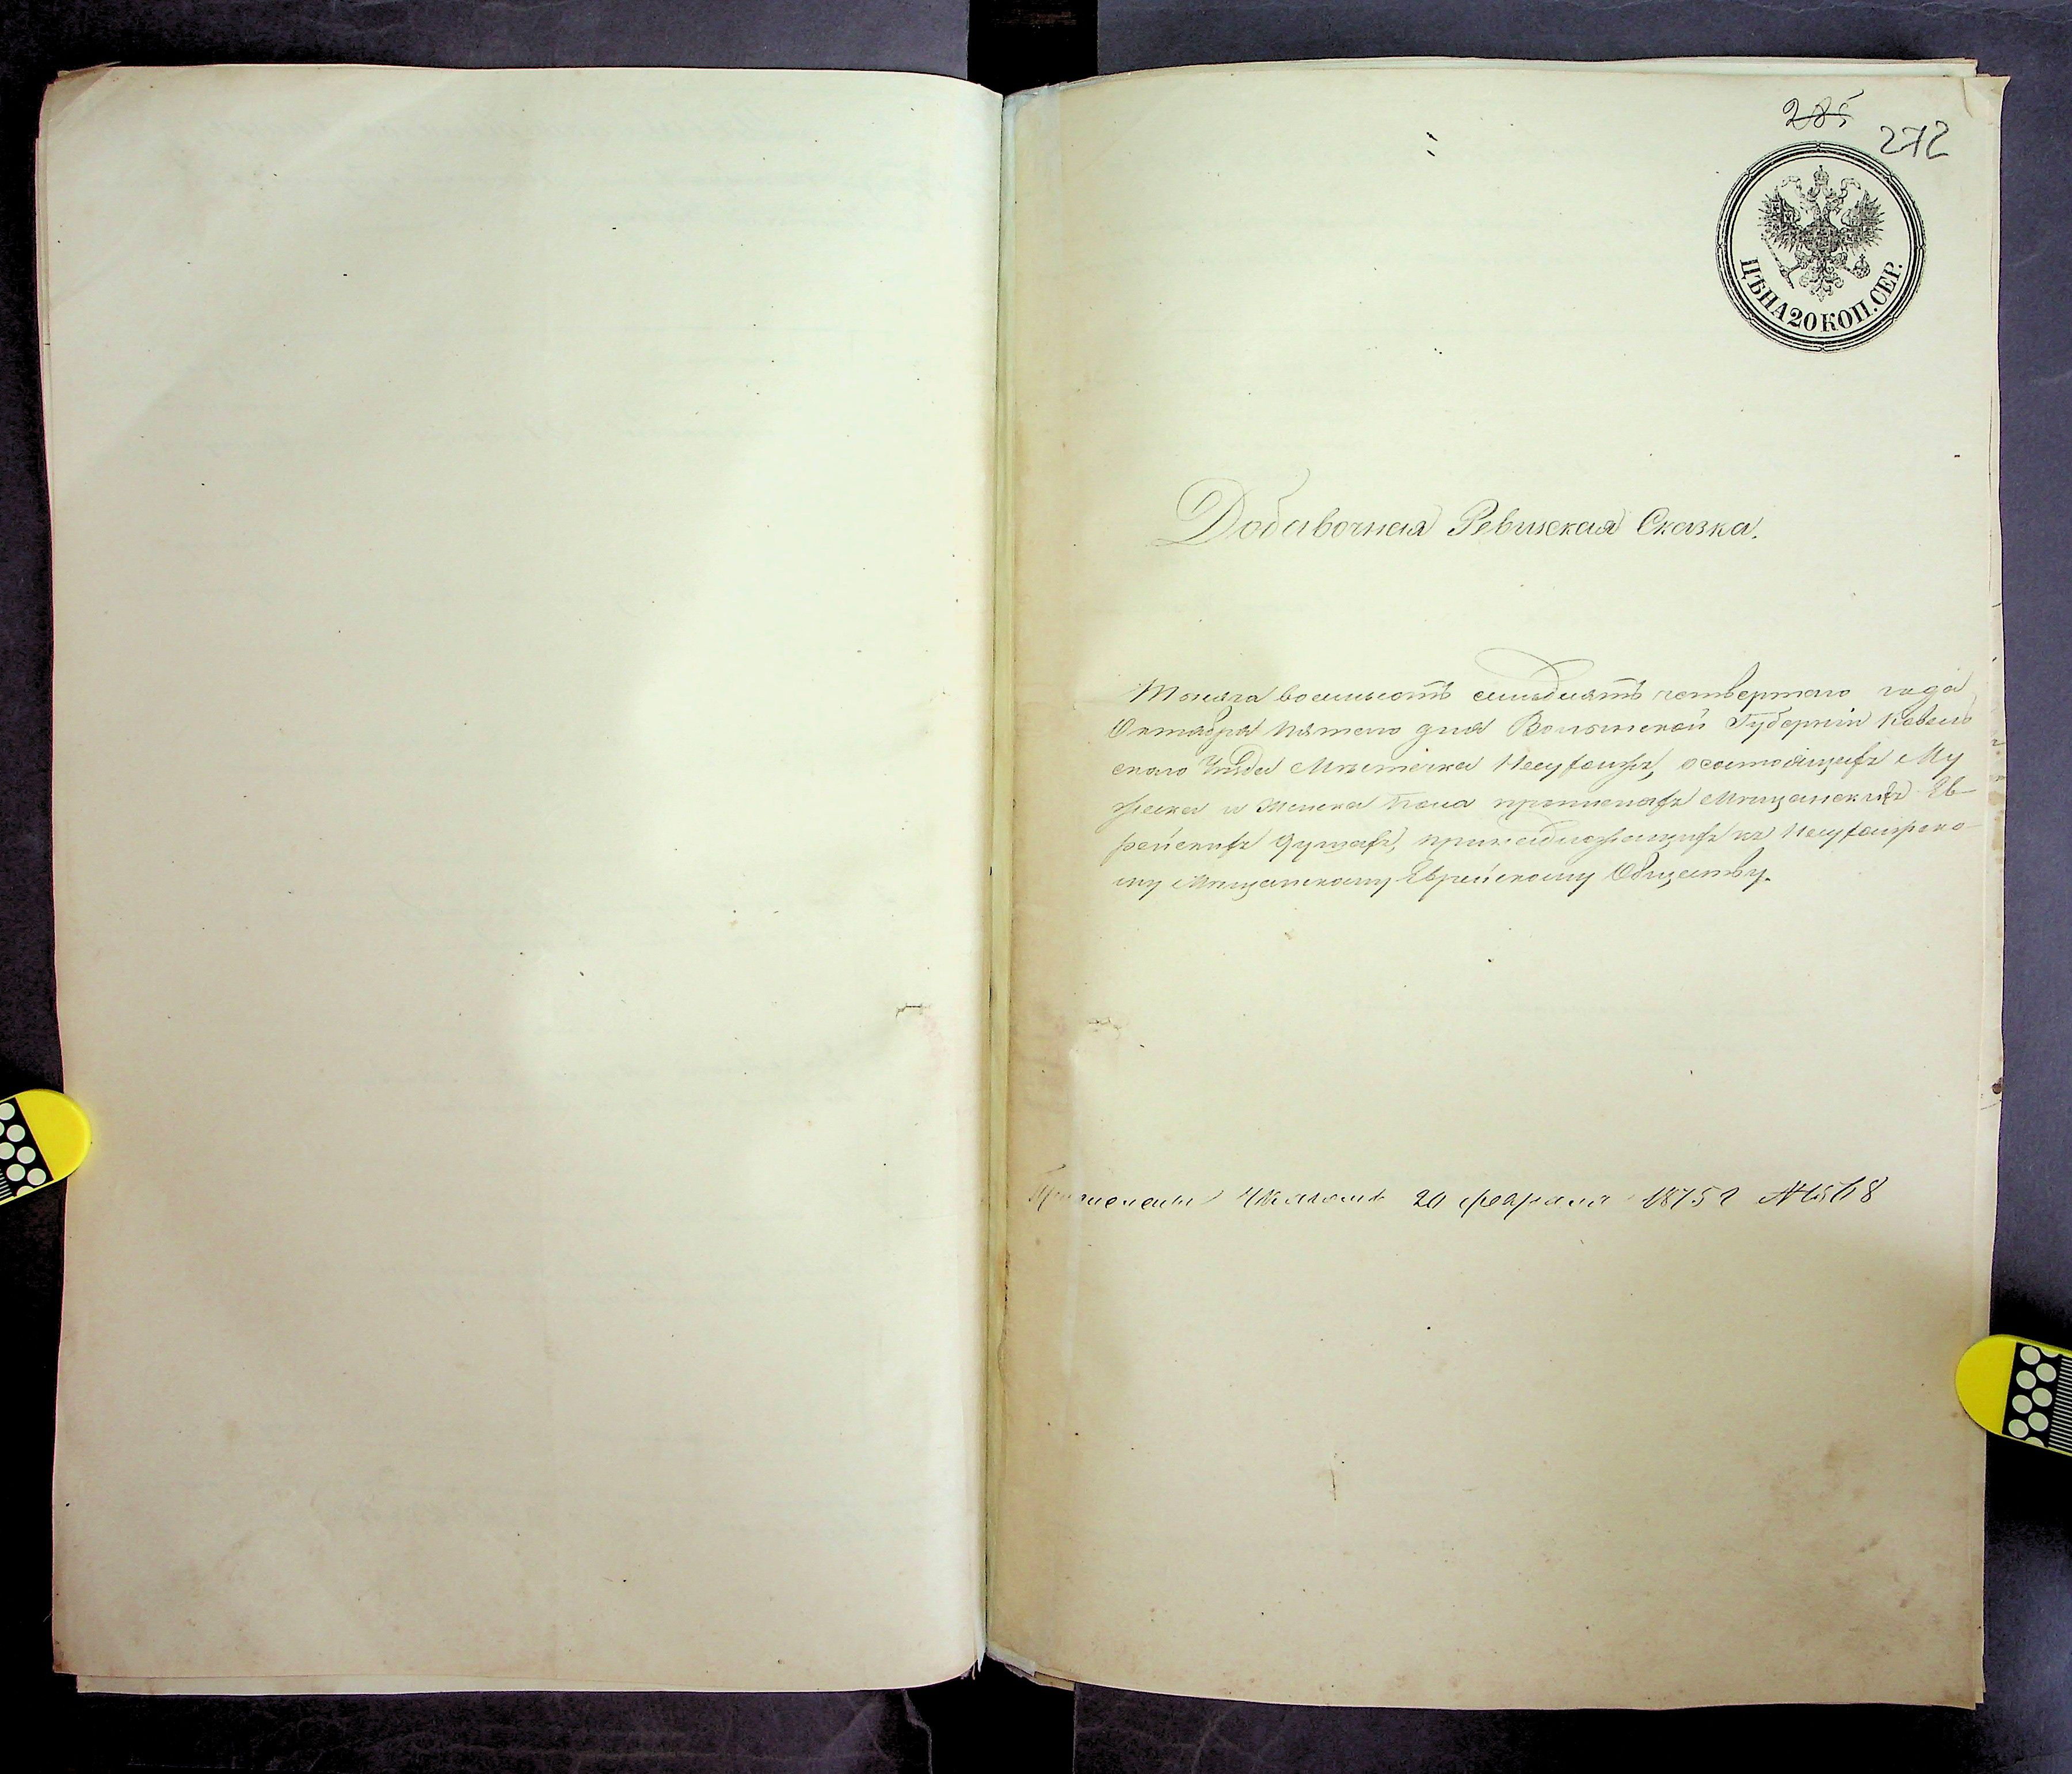 285
272
ЦѢНА 20 КОП. СЕР.
Добавочная Ревизская Сказка.
Тысяча восемьсотъ семьдесятъ четвертаго года
Октября пятаго дня Волынской Губерніи Ковель
скаго Уѣзда Мѣстечка Несухоижъ, о состоящихъ Му
жеска и женска пола мѣщанскихъ Ев
рейскихъ душахъ, принадлежащихъ къ Несухоижско
му Мѣщанскому Еврейскому Обществу.
Указомъ 20 февраля 1875 г №